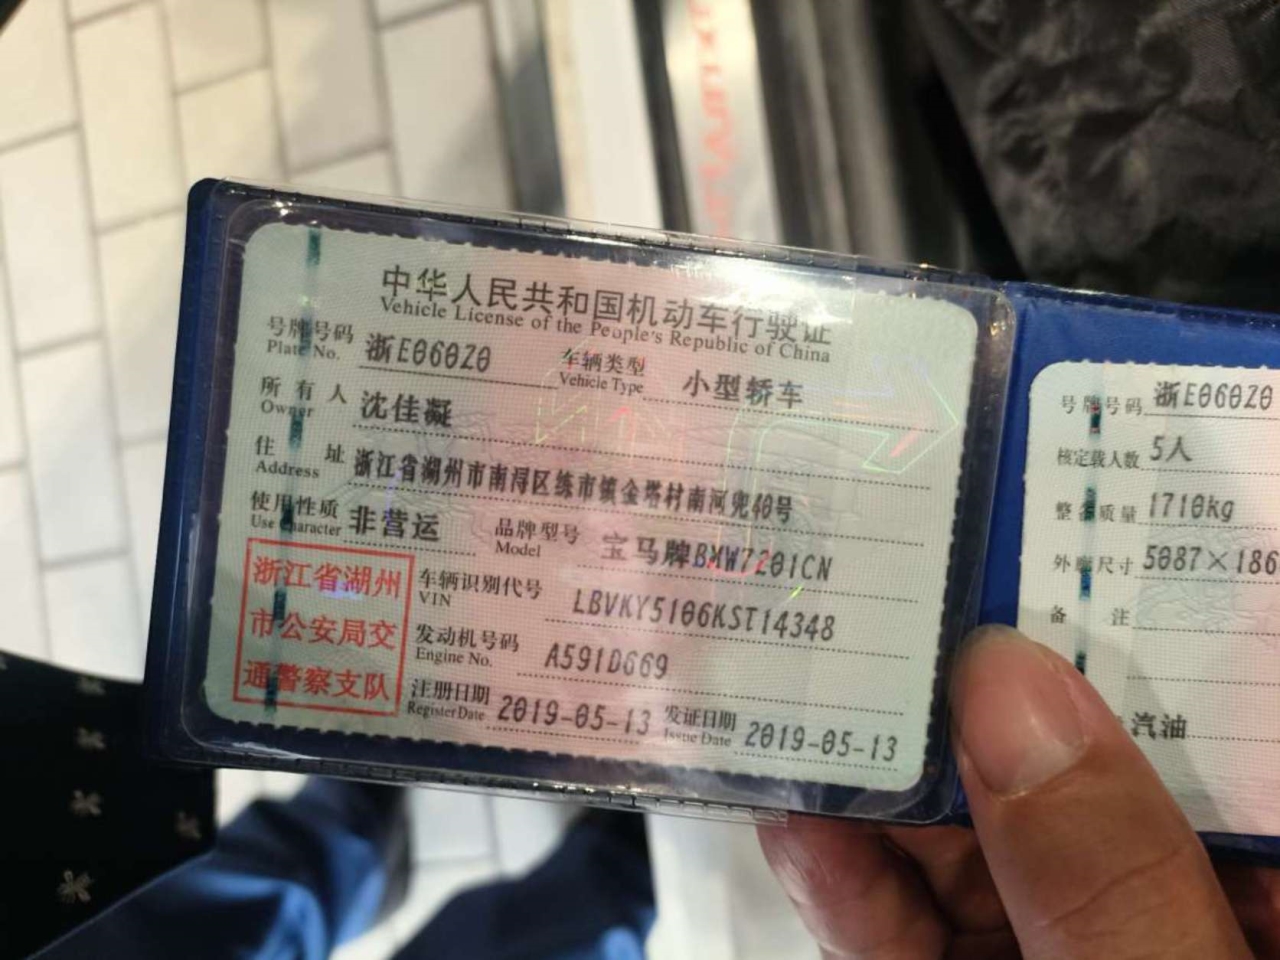 中华人民共和国机动车行驶证
Vehicle License of the People's Republic of China
号牌号码 浙E060Z0 车辆类型 小型轿车
Plate No. Vehicle Type
所有人 沈佳凝
Owner
住址 浙江省湖州市南得区练市镇金塔村南河兜40号
Address
使用性质 非营运 品牌型号 宝马牌BMW7201CN
Use Character Model
浙江省湖州
市公安局交
通警察支队
车辆识别代号 LBVKY5106KST14348
VIN
发动机号码 A591D669
Engine No.
注册日期 2019-05-13 发证日期 2019-05-13
Register Date Issue Date
号牌号码 浙E060Z0
核定载人数 5人
整备质量 1710kg
外廓尺寸 5087×186
备注
汽油